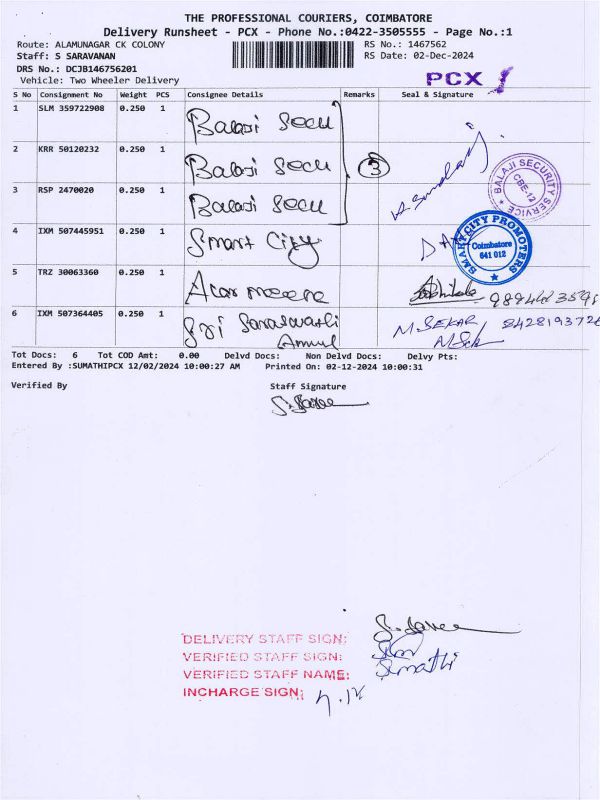 THE PROFESSIONAL COURIERS, COIMBATORE
Delivery Runsheet - PCX - Phone No.:0422-3505555 - Page No.:1
Route: ALAMUNAGAR CK COLONY
RS No.: 1467562
Staff: S SARAVANAN
RS Date: 02-Dec-2024
DRS No.: DCJB146756201
Vehicle: Two Wheeler Delivery
PCX 1
S No Consignment No Weight PCS Consignee Details Remarks Seal & Signature
1 SLM 359722908 0.250 1 Balaji Secu
2 KRR 50120232 0.250 1 Balaji Secu 3
3 RSP 2470020 0.250 1 Balaji Secu
BALAJI SECURITY SERVICE
CBE-12
4 IXM 507445951 0.250 1 Smart City
SMART CITY PROMOTERS
Coimbatore
641 012
5 TRZ 30063360 0.250 1
6 IXM 507364405 0.250 1 Sri Saraswathi M.SEKAR
Ammul
Tot Docs: 6 Tot COD Amt: 0.00 Delvd Docs: Non Delvd Docs: Delvy Pts:
Entered By :SUMATHIPCX 12/02/2024 10:00:27 AM Printed On: 02-12-2024 10:00:31
Verified By Staff Signature
DELIVERY STAFF SIGN:
VERIFIED STAFF SIGN:
VERIFIED STAFF NAME: Sumathi
INCHARGE SIGN: